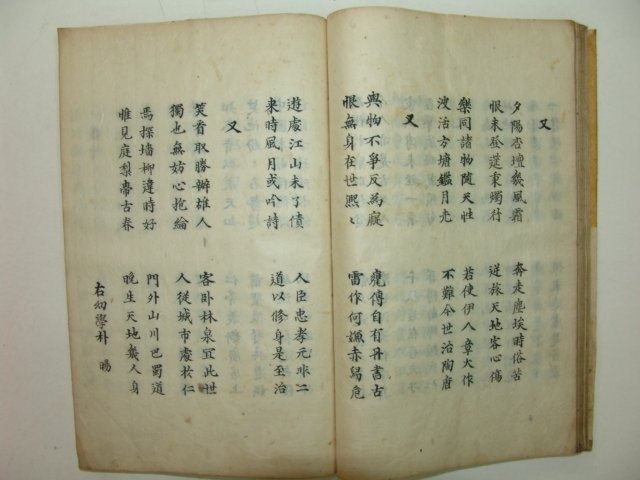 又
夕陽杏壇幾風霜 奔走塵埃時俗苦
恨未登筵秉燭行 逆旅天地客心傷
樂同諸物隨天性 若使伊人章大作
波活方塘鑑月光 不難今世治陶唐
又
與物不爭反為 庬傳自有丹書古
恨無身在世熙〻 雷作何 赤舄危
遊處江山未了債 人臣忠孝元非二
来時風月或吟詩 道以修身是至治
又
笑看取勝 雄人 客卧林泉宜此世
獨也無妨心抱綸 人從城市處於仁
焉探墻柳達時好 門外山川巴蜀道
惟見庭梨帶古春 晚生天地幾人身
右幼學朴 暘